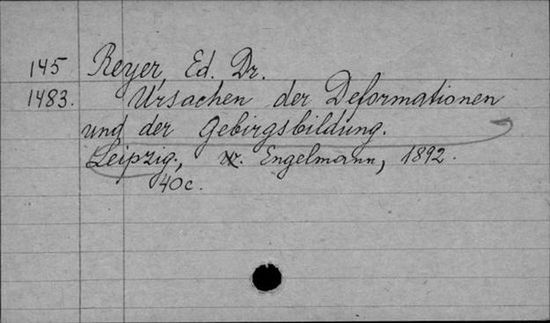 145 Reyer, Ed. Dr.
1483. Ursachen der Deformationen
und der Gebirgsbildung.
Leipzig, W. Engelmann, 1892.
40c.